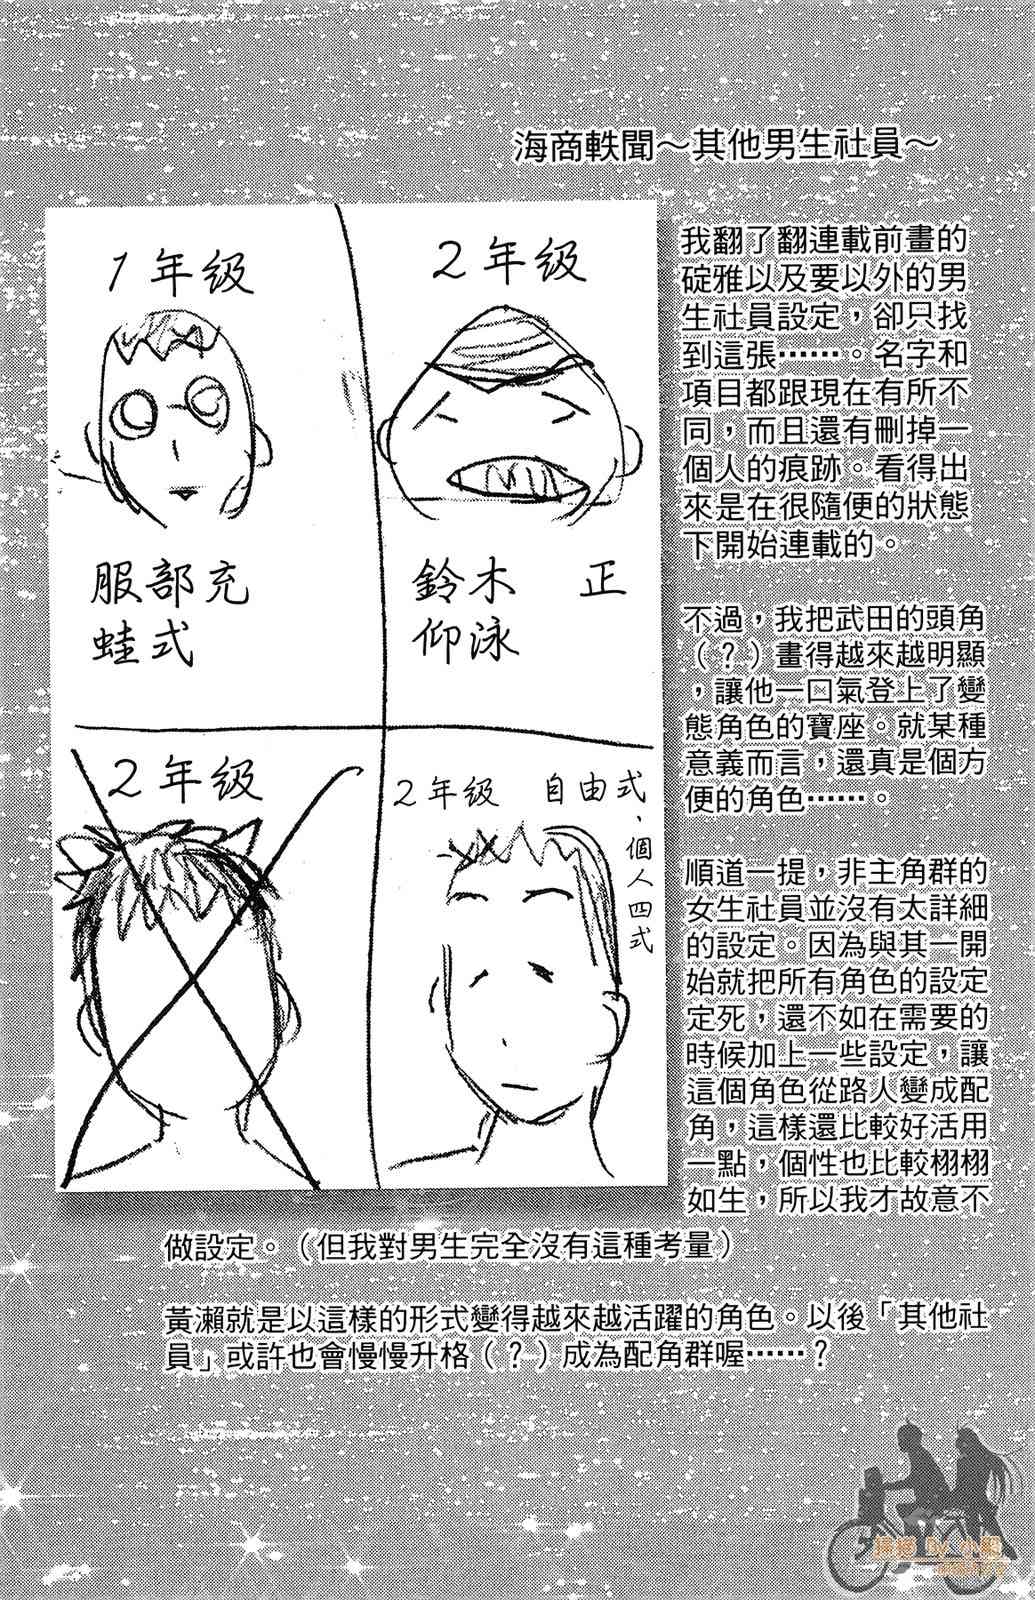 海商軼聞～其他男生社員～
1年級
服部充
蛙式
2年級
鈴木 正
仰泳
2年級
2年級 自由式、個人四式
我翻了翻連載前畫的
碇雅以及要以外的男
生社員設定，卻只找
到這張……。名字和
項目都跟現在有所不
同，而且還有刪掉一
個人的痕跡。看得出
來是在很隨便的狀態
下開始連載的。
不過，我把武田的頭角
（？）畫得越來越明顯
，讓他一口氣登上了變
態角色的寶座。就某種
意義而言，還真是個方
便的角色……。
順道一提，非主角群的
女生社員並沒有太詳細
的設定。因為與其一開
始就把所有角色的設定
定死，還不如在需要的
時候加上一些設定，讓
這個角色從路人變成配
角，這樣還比較好活用
一點，個性也比較栩栩
如生，所以我才故意不
做設定。（但我對男生完全沒有這種考量）
黃瀨就是以這樣的形式變得越來越活躍的角色。以後「其他社
員」或許也會慢慢升格（？）成為配角群喔……？
掃描 By 小